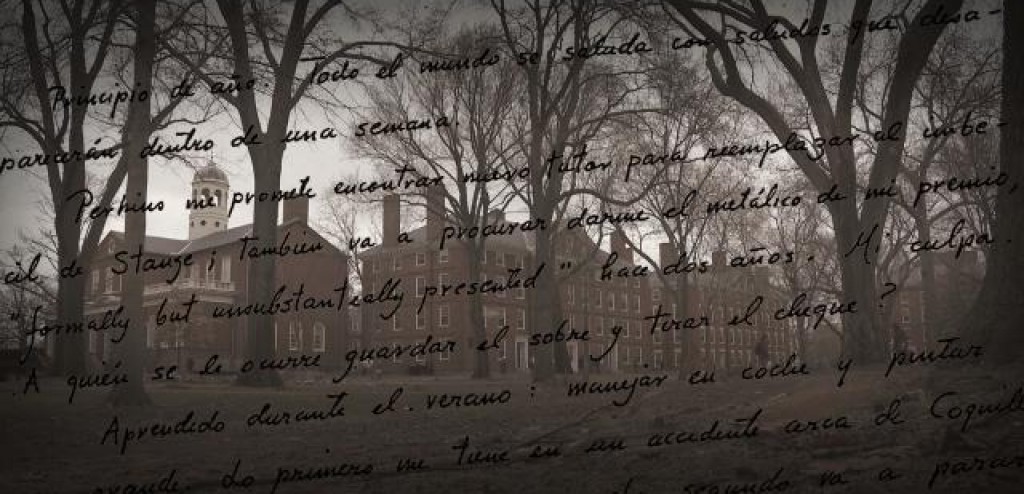 Principio de año. Todo el mundo se saluda con saludos que desa-
parecerán dentro de una semana.
Perkins me promete encontrar nuevo tutor para reemplazar al imbé-
cil de Stange; también va a procurar darme el metálico de mi premio,
"formally but unsubstantially presented" hace dos años. Mi culpa.
A quién se le ocurre guardar el sobre y tirar el cheque?
Aprendido durante el verano: manejar en coche y pintar
Lo primero me tiene en un accidente arca de
segundo va a parar